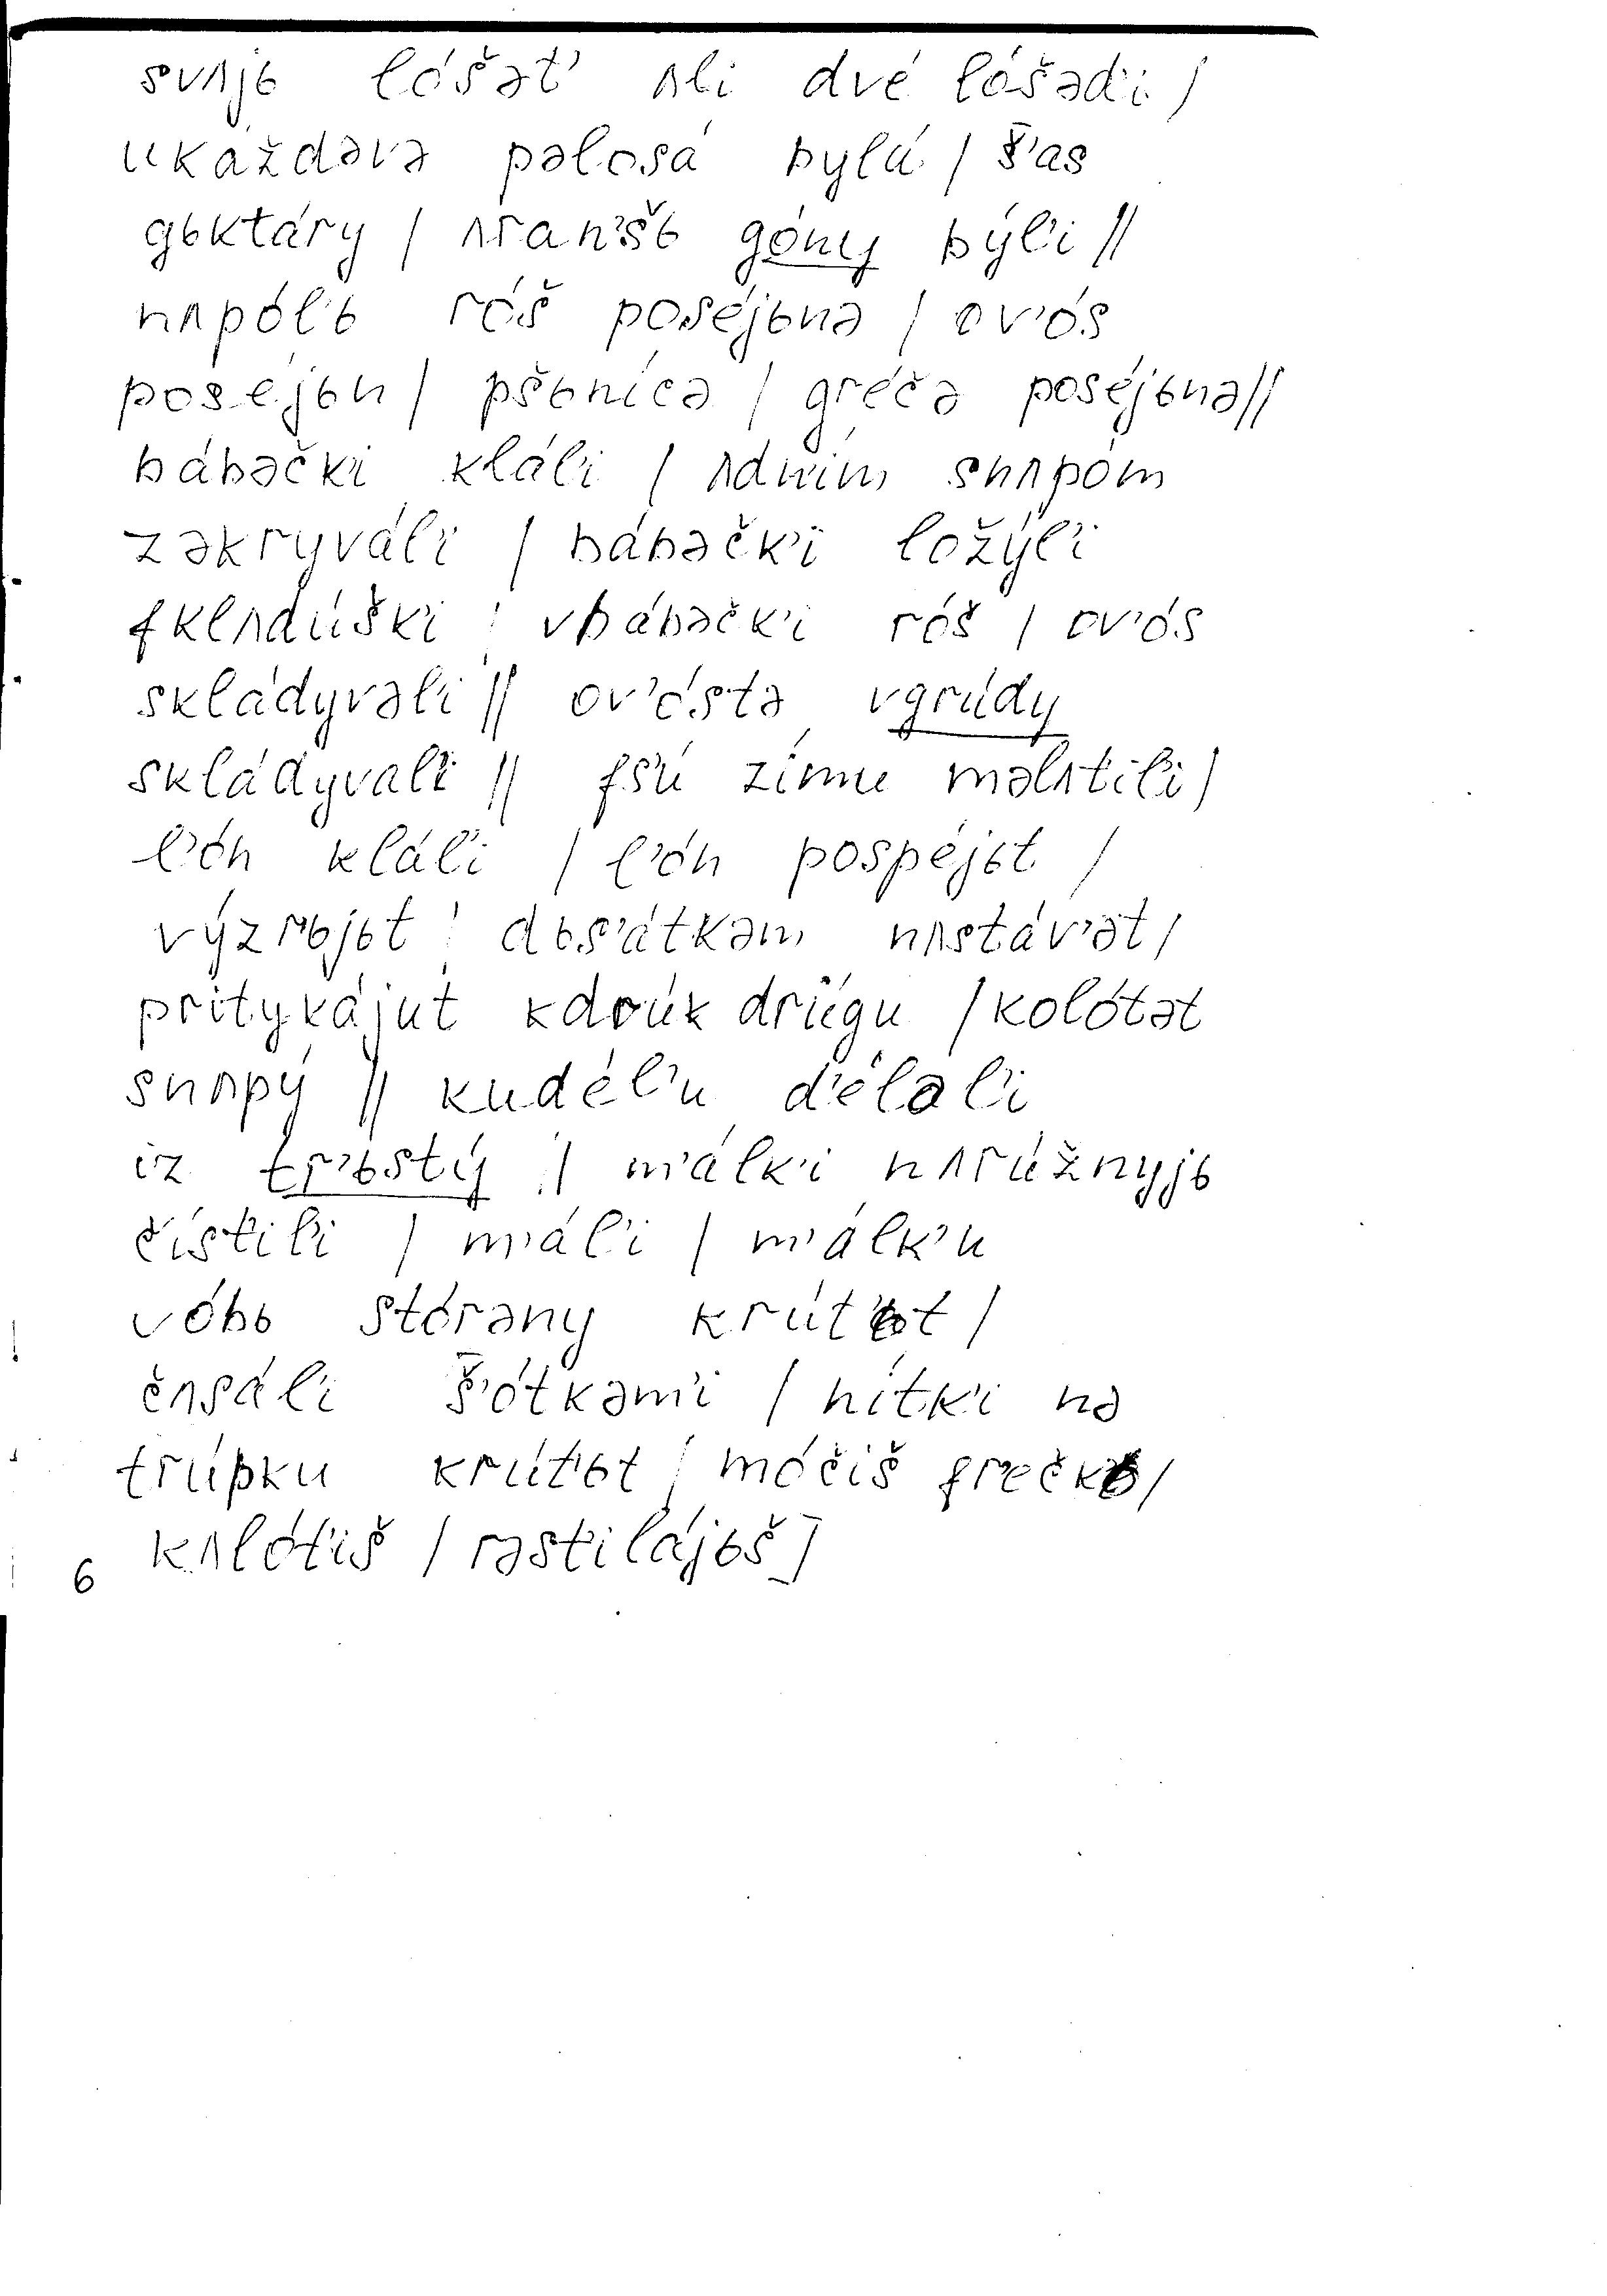 svʌjь lóšət' ʌl'i dv'é lóšəd'i /
ukáždəvə pəlosá bylá / š̄'as
gьktáry / ʌran'šь góny býl'i //
nʌpól'ь róš pos'éjьnə / ov'ós
pos'éjьn / pšьn'ícə / gr'éčə pos'éjьnə //
bábəčk'i klál'i / ʌdn'ím snʌpóm
zəkryvál'i / bábəčk'i ložýl'i
fklʌdúšk'i / vbábəčk'i róš / ov'ós
skládyvəl'i // ov'óstə vgrúdy
skládyval'i // fs'ú z'ímu məlʌt'íl'i /
l'ón klál'i / l'ón posp'éjьt /
výzr'ьjьt / d'ьs'átkəm nʌstáv'ət /
pr'itykájut kdrúk drúgu / kolót'ət
snʌpý // kud'él'u d'élal'i
iz tr'ьstý / m'álk'i nʌrúžnyjь
č'íst'il'i / m'ál'i / m'álk'u
vóbь stórəny krút'ьt /
čʌsál'i š̄'ótkəm'i / n'ítk'i nə
trúpku krút'ьt / móčiš fr'ečkь /
kʌlót'iš / rəst'ilájьš]
6